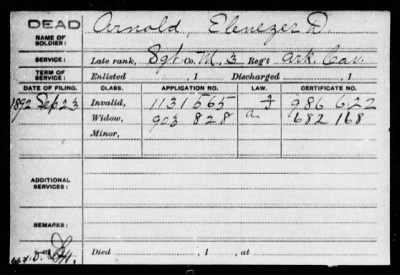 DEAD
NAME OF SOLDIER: Arnold, Ebenezer D.
SERVICE: Late rank, Sgt Co. M, 3 Reg't Ark. Cav.
TERM OF SERVICE: Enlisted , 1 Discharged , 1
DATE OF FILING. CLASS. APPLICATION NO. LAW. CERTIFICATE NO.
1892 Sep 23 Invalid, 1131565 986 622
Widow, 903 828 a 682 168
Minor,
ADDITIONAL SERVICES:
REMARKS:
Died , 1 , at